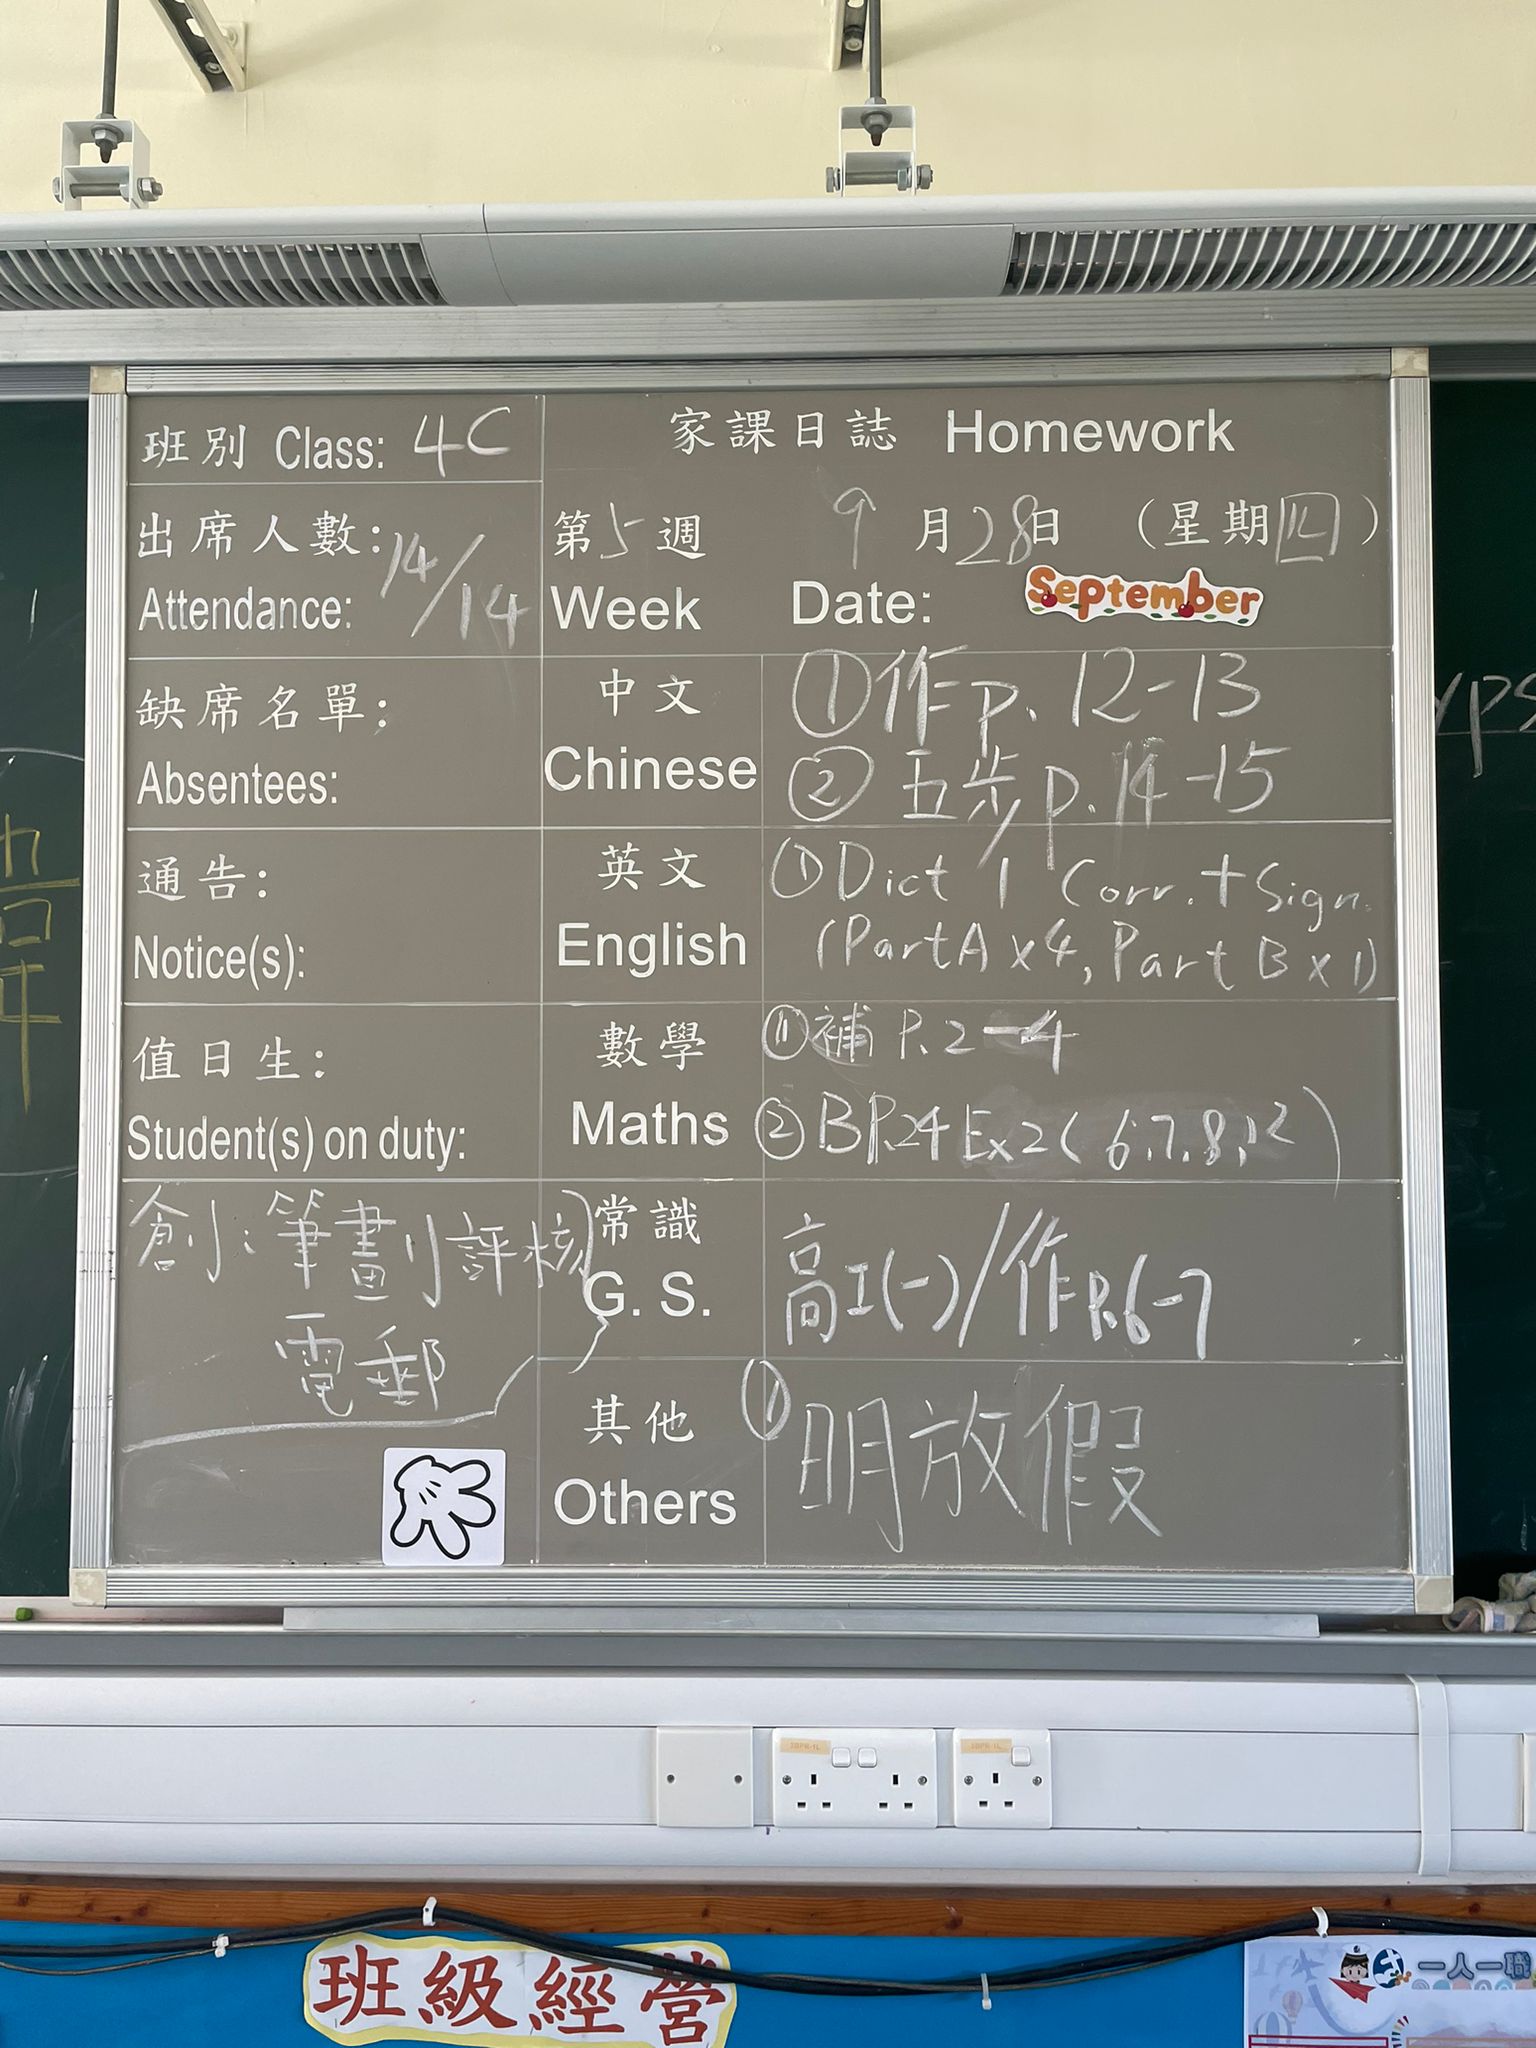 班別 Class: 4C
出席人數: 14/14
Attendance:
缺席名單:
Absentees:
通告:
Notice(s):
值日生:
Student(s) on duty:
創:筆劃評核
電郵
家課日誌 Homework
第5週 9月28日 (星期四)
Week Date: September
中文 ①作P.12-13
Chinese ②五步P.14-15
英文 ①Dict 1 Corr.+Sign.
English (Part A x4, Part B x1)
數學 ①補P.2-4
Maths ②BP.24 Ex2(6,7,8,12)
常識 高工(一)/作P.6-7
G. S.
其他 ①明放假
Others
班級經營
一人一職